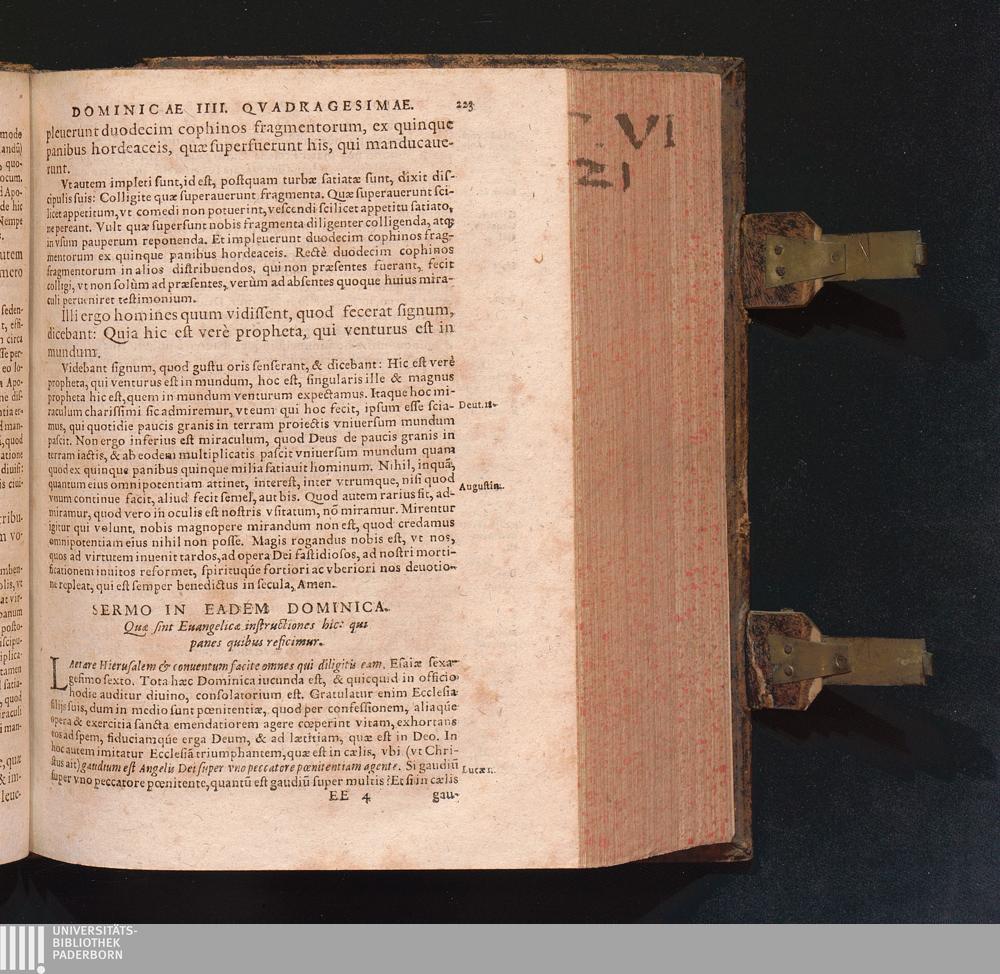 DOMINICAE IIII. QVADRAGESIMAE. 223
pleuerunt duodecim cophinos fragmentorum, ex quinque
panibus hordeaceis, quæ superfuerunt his, qui manducaue-
runt.
Vt autem impleti sunt, id est, postquam turbæ satiatæ sunt, dixit dis-
cipulis suis: Colligite quæ superauerunt fragmenta. Quæ superauerunt sci-
licet appetitum, vt comedi non potuerint, vescendi scilicet appetitu satiato,
ne pereant. Vult quæ supersunt nobis fragmenta diligenter colligenda, atq;
in vsum pauperum reponenda. Et impleuerunt duodecim cophinos frag-
mentorum ex quinque panibus hordeaceis. Rectè duodecim cophinos
fragmentorum in alios distribuendos, qui non præsentes fuerant, fecit
colligi, vt non solùm ad præsentes, verùm ad absentes quoque huius mira-
culi perueniret testimonium.
Illi ergo homines quum vidissent, quod fecerat signum,
dicebant: Quia hic est verè propheta, qui venturus est in
mundum.
Videbant signum, quod gustu oris senserant, & dicebant: Hic est verè
propheta, qui venturus est in mundum, hoc est, singularis ille & magnus
propheta hic est, quem in mundum venturum expectamus. Itaque hoc mi-
raculum charissimi sic admiremur, vt eum qui hoc fecit, ipsum esse scia- Deut. 18.
mus, qui quotidie paucis granis in terram proiectis vniuersum mundum
pascit. Non ergo inferius est miraculum, quod Deus de paucis granis in
terram iactis, & ab eodem multiplicatis pascit vniuersum mundum quam
quod ex quinque panibus quinque milia satiauit hominum. Nihil, inquã,
quantum eius omnipotentiam attinet, interest, inter vtrumque, nisi quod
vnum continue facit, aliud fecit semel, aut bis. Quod autem rarius fit, ad- Augustin.
miramur, quod vero in oculis est nostris vsitatum, nõ miramur. Mirentur
igitur qui volunt, nobis magnopere mirandum non est, quod credamus
omnipotentiam eius nihil non posse. Magis rogandus nobis est, vt nos,
quos ad virtutem inuenit tardos, ad opera Dei fastidiosos, ad nostri morti-
ficationem inuitos reformet, spirituqúe fortiori ac vberiori nos deuotio-
ne repleat, qui est semper benedictus in secula, Amen.
SERMO IN EADEM DOMINICA.
Quæ sint Euangelicæ instructiones hic: qui
panes quibus reficimur.
LAetare Hierusalem & conuentum facite omnes qui diligitis eam. Esaiæ sexa-
gesimo sexto. Tota hæc Dominica iucunda est, & quicquid in officio
hodie auditur diuino, consolatorium est. Gratulatur enim Ecclesia
filijs suis, dum in medio sunt pœnitentiæ, quod per confessionem, aliaqúe
opera & exercitia sancta emendatiorem agere cœperint vitam, exhortans
eos ad spem, fiduciamqúe erga Deum, & ad lætitiam, quæ est in Deo. In
hoc autem imitatur Ecclesiã triumphantem, quæ est in cælis, vbi (vt Chri-
stus ait) gaudium est Angelis Dei super vno peccatore pœnitentiam agente. Si gaudiũ
super vno peccatore pœnitente, quantũ est gaudiũ super multis? Et si in cælis
EE 4 gau-
VI
21
UNIVERSITÄTS-
BIBLIOTHEK
PADERBORN